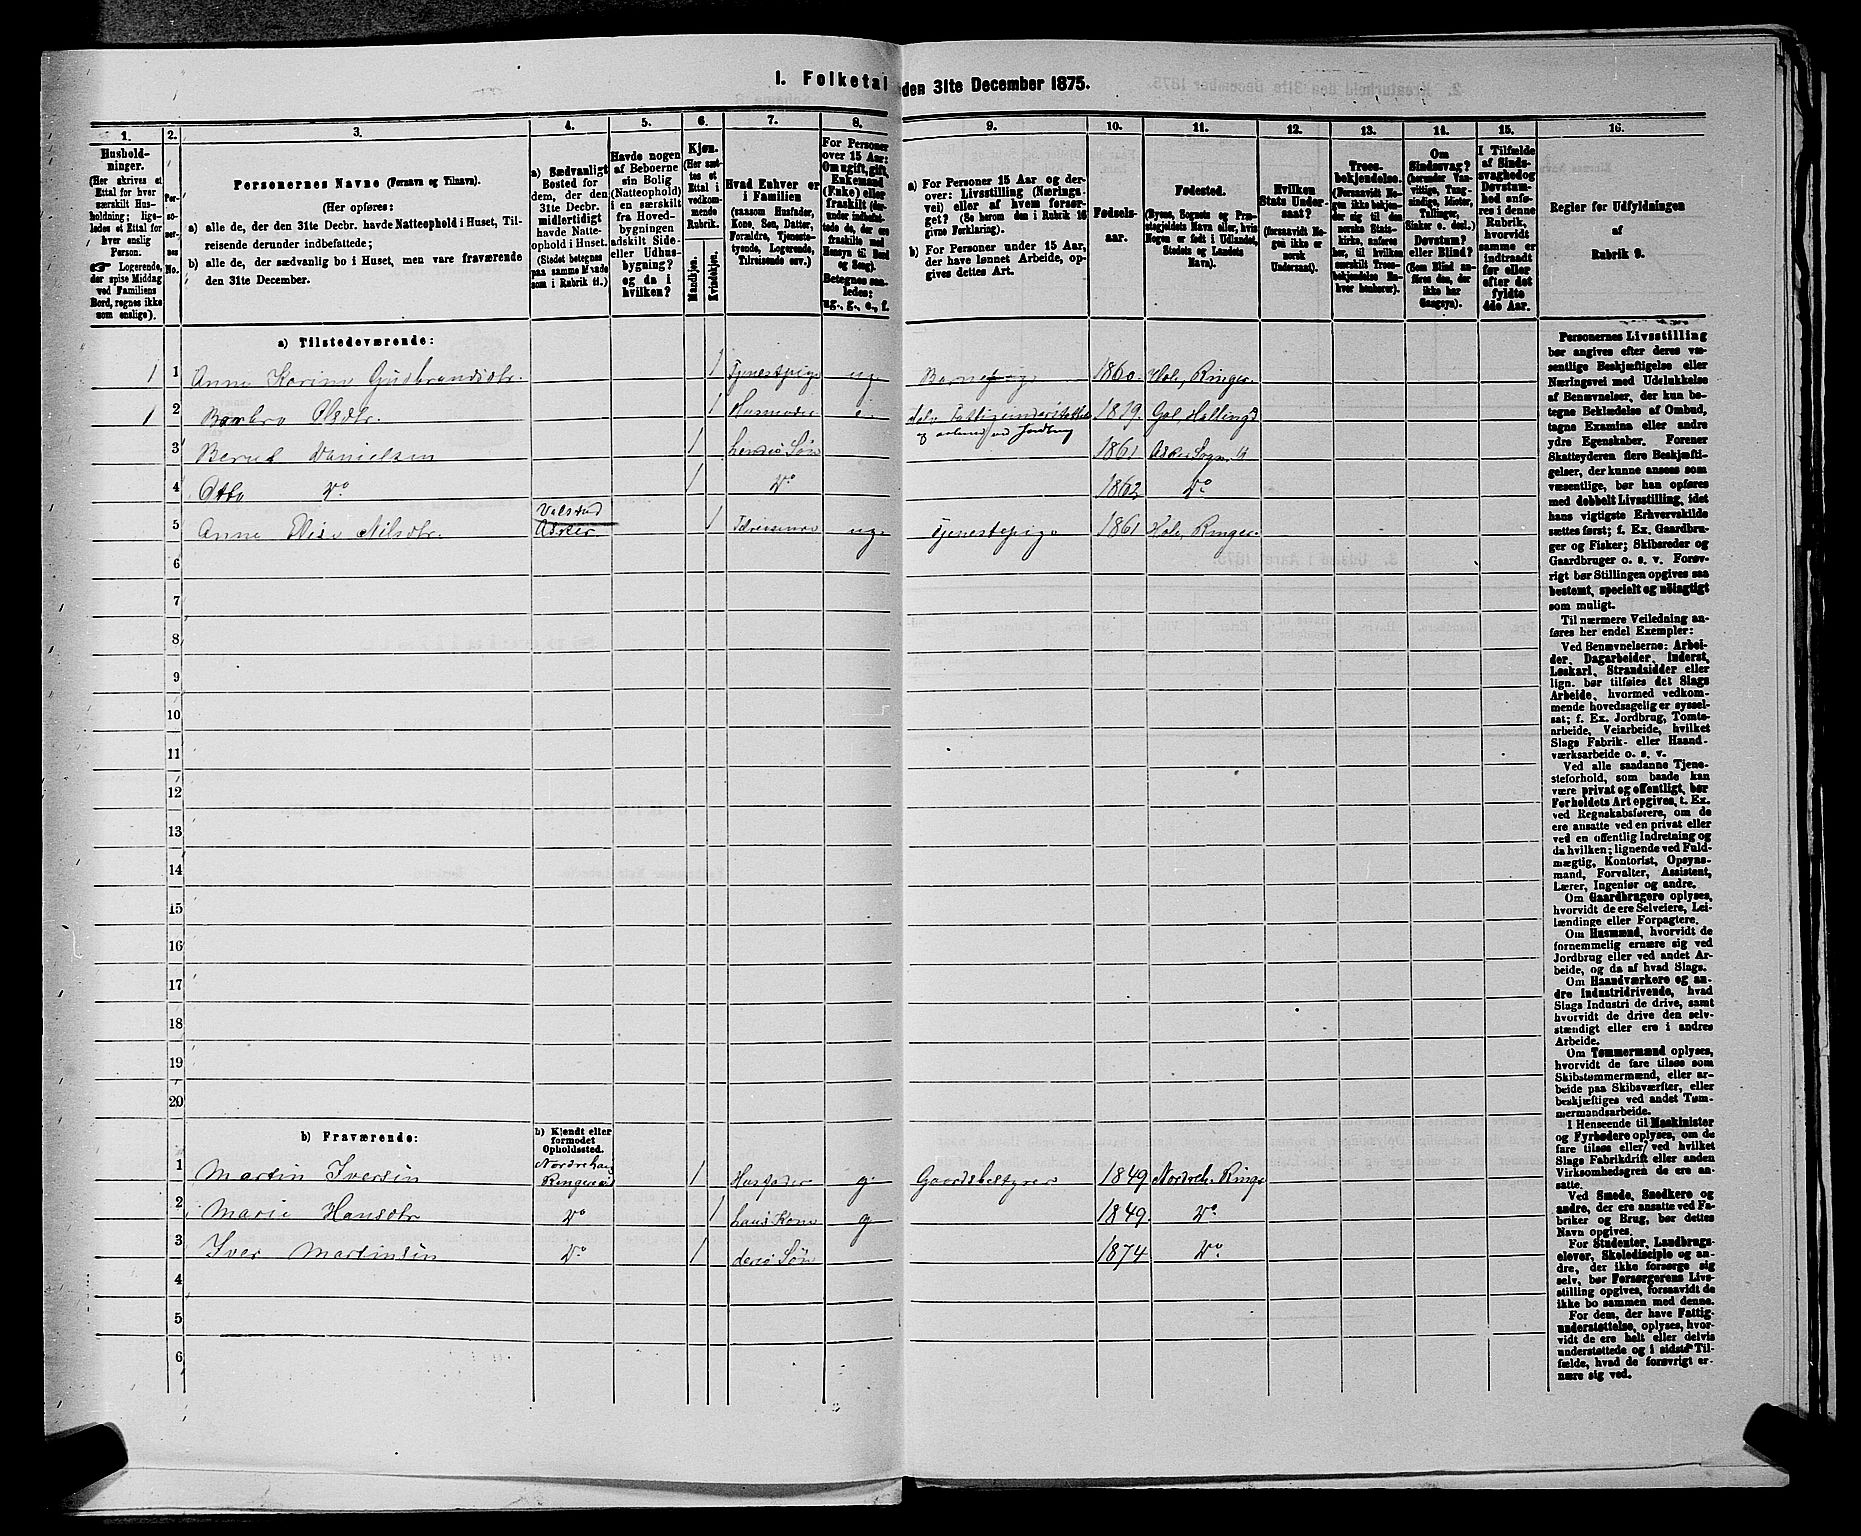 I. Folketal den 31te December 1875.
1.
Hushold-
ninger.
(Her skrives et
Ettal for hver
særskilt Hus-
holdning; lige-
ledes et Ettal for
hver enslig
Person.
☞ Logerende,
der spise Middag
ved Familiens
Bord, regnes ikke
som enslige).
2.
Per-
so-
ner-
nes
No.
3.
Personernes Navne (Fornavn og Tilnavn).
(Her opføres:
a) alle de, der den 31te Decbr. havde Natteophold i Huset, Til-
reisende derunder indbefattede;
b) alle de, der sædvanlig bo i Huset, men vare fraværende
den 31te December.
4.
a) Sædvanligt
Bosted for
dem, der den
31te Decbr.
midlertidigt
havde Natte-
ophold i Huset.
(Stedet betegnes
paa samme Maade
som i Rubrik 11.)
5.
Havde nogen
af Beboerne
sin Bolig
(Natteophold)
i en særskilt
fra Hoved-
bygningen
adskilt Side-
eller Udhus-
bygning?
og da i
hvilken?
6.
Kjøn.
(Her sæt-
tes et
Ettal i
vedkom-
mende
Rubrik.
Mandkjøn.
Kvindekjøn.
7.
Hvad Enhver er
i Familien
(saasom Husfader,
Kone, Søn, Datter,
Forældre, Tjeneste-
tyende, Logerende,
Tilreisende osv.)
8.
For Personer
over 15 Aar:
Om ugift, gift,
Enkemand
(Enke) eller
fraskilt (der-
under indbefat-
tede de, der ere
fraskilte med
Hensyn til Bord
og Seng).
Betegnes saa-
ledes:
ug., g., e., f.
9.
a) For Personer 15 Aar og der-
over: Livsstilling (Nærings-
vei) eller af hvem forsør-
get? (Se herom den i Rubrik 16
givne Forklaring).
b) For Personer under 15 Aar,
der have lønnet Arbeide, op-
gives dettes Art.
10.
Fødsels-
aar.
11.
Fødested.
(Byens, Sognets og Præ-
stegjeldets Navn eller, hvis
Nogen er født i Udlandet,
Stedets og Landets
Navn).
12.
Hvilken
Stats Under-
saat?
(forsaavidt No-
gen ikke er
norsk
Undersaat).
13.
Troes-
bekjendelse.
(Forsaavidt No-
gen ikke bekjen-
der sig til den
norske Stats-
kirke, anføres
her, til hvilken
særskilt Troes-
bekjendelse En-
hver henhører).
14.
Om
Sindssvag?
(herunder Van-
vittige, Tung-
sindige, Idioter,
Tullinger,
Sinker o. desl.)
Døvstum?
eller Blind?
(Som Blind an-
føres den, der
ikke har
Gangsyn).
15.
I Tilfælde
af Sinds-
svaghed og
Døvstum-
hed anfø-
res i denne
Rubrik,
hvorvidt
samme er
indtraadt
før eller
efter det
fyldte
4de Aar.
16.
Regler for Udfyldningen
af
Rubrik 9.
a) Tilstedeværende:
1 1 Anne Karine Gudbrandsdtr. 1 Tjenestpige ug. Barnepige 1860. Hole, Ringer.
1 2 Barbro Olsdtr. 1 Husmoder e. delv. Fattigunderstøttet 1819. Gol, Hallingd
3 Berud Danielsen 1 hendes Søn 1861 Asker Sogn
4 Otto Do 1 Do 1862 Do
5 Anne Elise Nilsdtr. Valstad Asker 1 Tilreisende ug. Tjenestepige 1861 Hole, Ringer.
6
7
8
9
10
11
12
13
14
15
16
17
18
19
20
b) Fraværende:
b) Kjendt eller
formodet
Opholdssted.
1 Martin Iversen Nordrehaug Ringerike 1 Husfader g. Gaardsbestyrer 1849 Nordreh. Ringe
2 Marie Hansdtr Do 1 hans Kone g 1849 Do
3 Iver Martinsen Do 1 deres Søn 1874 Do
4
5
6
Personernes Livsstilling
bør angives efter deres væ-
sentlige Beskjæftigelse eller
Næringsvei med Udelukkelse
af Benævnelser, der kun be-
tegne Beklædelse af Ombud,
tagne Examina eller andre
ydre Egenskaber. Forener
Skatteyderen flere Beskjæfti-
gelser, der kunne ansees som
væsentlige, bør han opføres
med dobbelt Livsstilling, idet
hans vigtigste Erhvervskilde
sættes først; f. Ex. Gaardbru-
ger og Fisker; Skibsreder og
Gaardbruger o. s. v. Forøv-
rigt bør Stillingen opgives saa
bestemt, specielt og nøiagtigt
som muligt.
Til nærmere Veiledning an-
føres her endel Exempler:
Ved Benævnelserne: Arbei-
der, Dagarbeider, Inderst,
Løskarl, Strandsidder eller
lign. bør tilføies det Slags
Arbeide, hvormed vedkom-
mende hovedsagelig er syssel-
sat; f. Ex. Jordbrug, Tomte-
arbeide, Veiarbeide, hvilket
Slags Fabrik- eller Haand-
værksarbeide o. s. v.
Ved alle saadanne Tjene-
steforhold, som baade kan
være privat og offentligt, bør
Forholdets Art opgives, t. Ex.
ved Regnskabsførere, om de
ere ansatte ved en privat eller
ved en offentlig Indretning og
da hvilken; lignende ved Fuld-
mægtig, Kontorist, Opsyns-
mand, Forvalter, Assistent,
Lærer, Ingeniør og andre.
Om Gaardbrugere oplyses,
hvorvidt de ere Selveiere, Lei-
lændinge eller Forpagtere.
Om Husmænd, hvorvidt de
fornemmelig ernære sig ved
Jordbrug eller ved andet Ar-
beide, og da af hvad Slags.
Om Haandværkere og an-
dre Industridrivende, hvad
Slags Industri de drive, samt
hvorvidt de drive den selv-
stændigt eller ere i andres
Arbeide.
Om Tømmermænd oplyses,
hvorvidt de fare tilsøs som
Skibstømmermænd, eller ar-
beide paa Skibsværfter, eller
beskjæftiges ved andet Tøm-
mermandsarbeide.
I Henseende til Maskinister
og Fyrbødere oplyses, om de
fare tilsøs eller ved hvilket
Slags Fabrikdrift eller anden
Virksomhedsgren de ere an-
satte.
Ved Smede, Snedkere og
andre, der ere ansatte ved Fa-
briker og Brug, bør dettes
Navn opgives.
For Studenter, Landbrugs-
elever, Skoledisciple og an-
dre, der ikke forsørge sig
selv, bør Forsørgerens Livs-
stilling opgives, forsaavidt de
ikke bo sammen med denne.
For dem, der have Fattig-
understøttelse, oplyses, hvor-
vidt de ere helt eller delvis
understøttede og i sidste Til-
fælde, hvad de forøvrigt er-
nære sig ved.